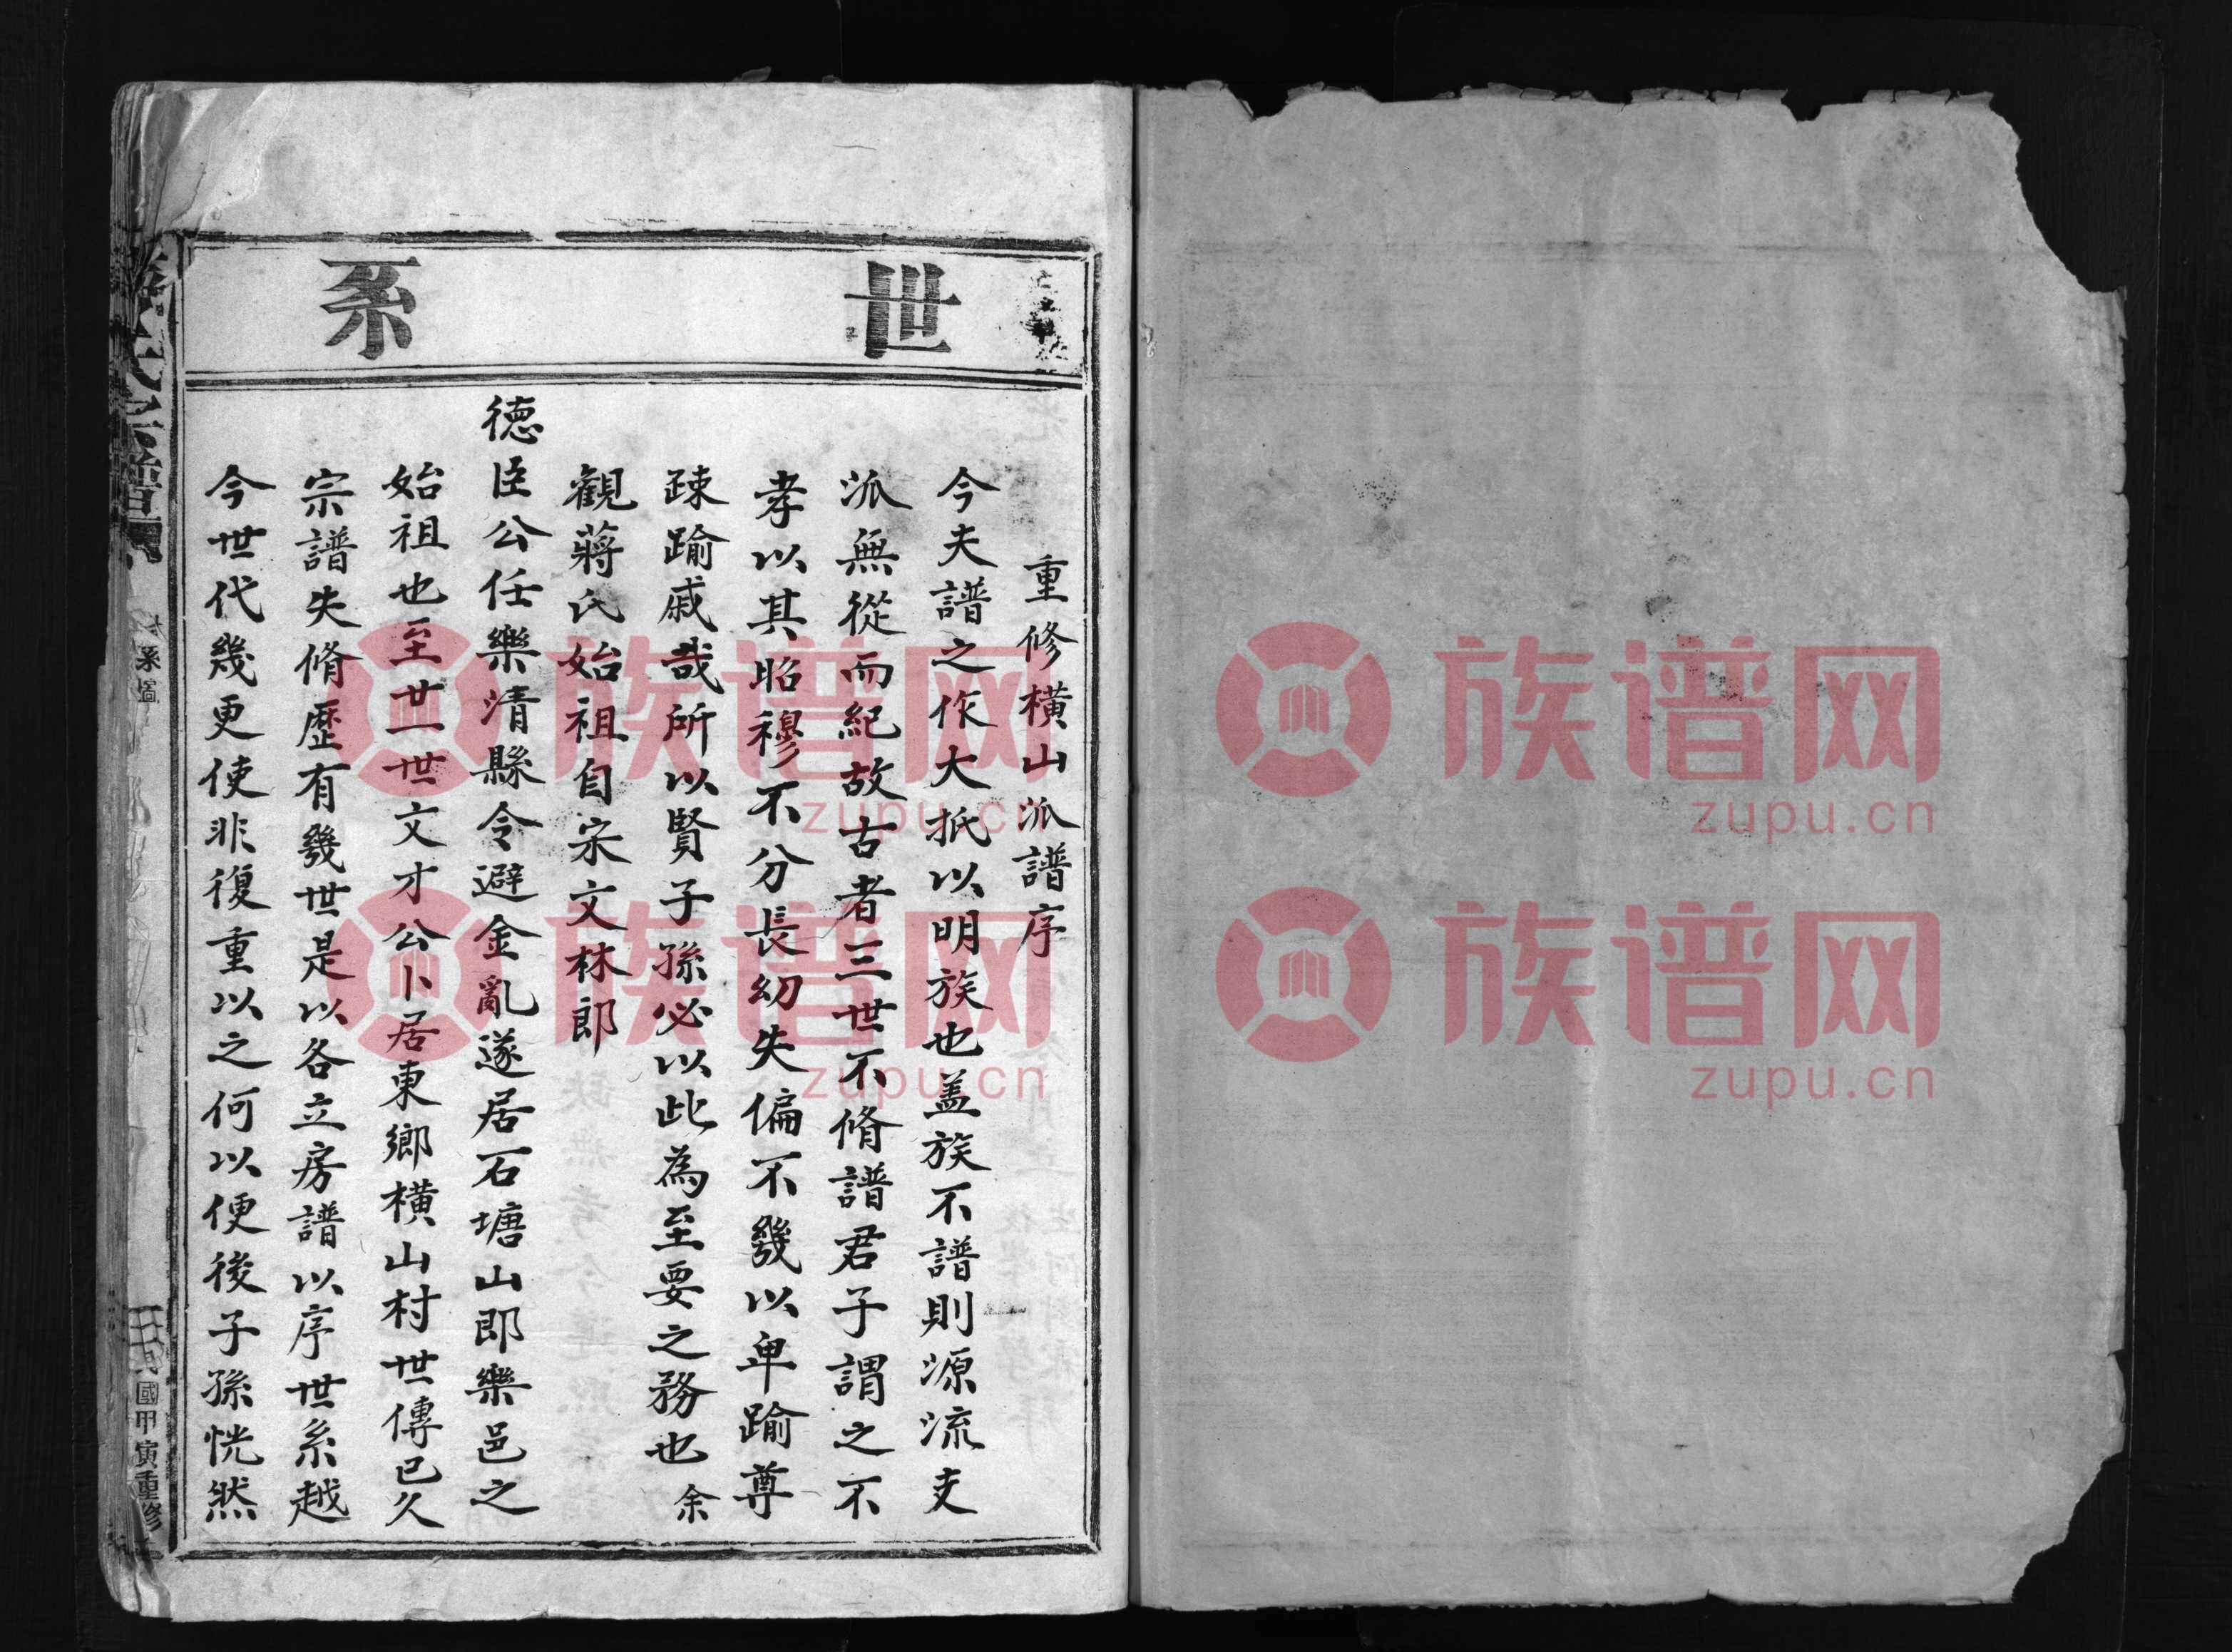 世系
重修橫山派譜序
今夫譜之作大抵以明族也盖族不譜則源流支
派無從而紀故古者三世不脩譜君子謂之不
孝以其昭穆不分長幼失偏不幾以卑踰尊
疎踰戚哉所以賢子孫必以此為至要之務也余
觀蔣氏始祖自宋文林郎
德臣公任樂清縣令避金亂遂居石塘山郎樂邑之
始祖也至廿一世文才公卜居東鄉橫山村世傳已久
宗譜失脩歷有幾世是以各立房譜以序世系越
今世代幾更使非復重以之何以便後子孫恍然
氏宗譜
系
國甲寅重修
族谱网
zupu.cn
族谱网
zupu.cn
族谱网
zupu.cn
族谱网
zupu.cn